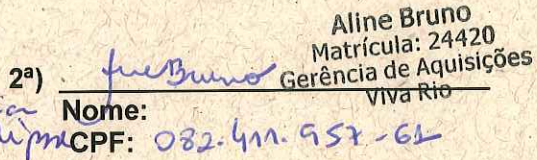 Aline Bruno
Matrícula: 24420
Gerência de Aquisições
Viva Rio
2ª)
Nome:
CPF: 082.411.957-61